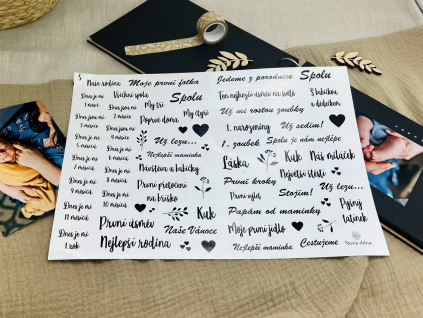 S
Naše rodina
Moje první fotka
Jedeme z porodnice
Spolu
Dnes je mi
1 měsíc
Všichni spolu
Spolu
Ten nejhezčí úsměv na světě
S babičkou
a dědečkem
Dnes jsou mi
2 měsíce
My tři
Už mi rostou zoubky
Dnes jsou mi
3 měsíce
Poprvé doma
My čtyři
1. narozeniny
Už sedím!
Dnes jsou mi
4 měsíce
Už lezu...
1. zoubek
Spolu je nám nejlépe
Dnes je mi
5 měsíců
Nejlepší maminka
Láska
Kuk
Náš miláček
Dnes je mi
6 měsíců
Návštěva u babičky
Největší štěstí
Dnes je mi
7 měsíců
První přetočení
na bříško
První kroky
Už lezu...
Dnes je mi
8 měsíců
První výlet
Stojím!
Dnes je mi
9 měsíců
Kuk
Papám od maminky
Pyšný
tatínek
Dnes je mi
10 měsíců
První úsměv
Naše Vánoce
Moje první jídlo
Dnes je mi
11 měsíců
Nejlepší rodina
Nejlepší maminka
Cestujeme
Dnes je mi
1 rok